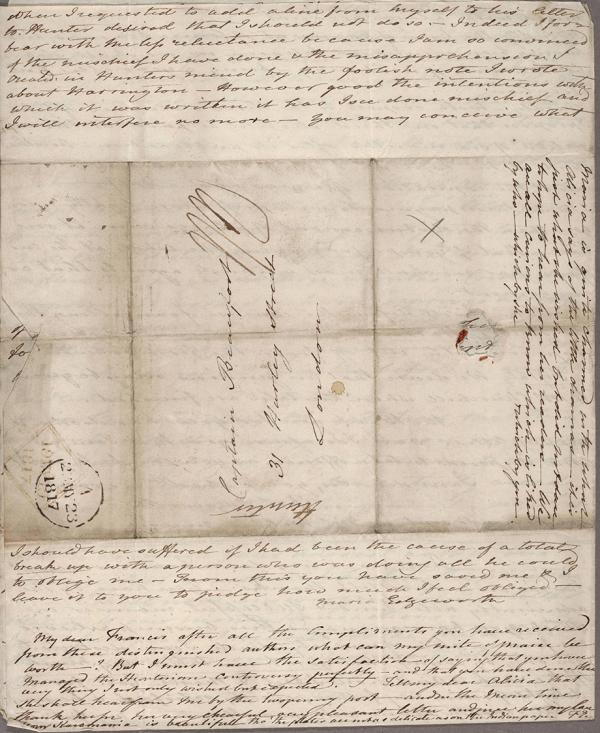 when I requested to add a line from myself to his letter
to Hunter desired that I should not do so – Indeed I for
bear with the less reluctance because I am so convinced
of the mischief I have done & the misapprehension I
created in Hunters mind by the foolish note I wrote
about Harrington – However good the intentions with
which it was written it has I see done mischief and
I will interfere no more – You may conceive what
Captain Beaufort
31 Harley Street
London
Maria is quite charmed with what
Alicia says of the
just what she wished
to hear from
are all anxious to know which is liked
by
which by you
A
23
1817
I should have suffered if I had been the cause of a total
break up with a person who was doing all he could
to oblige me – From this you have saved me & I
leave it to you to judge how much I feel obliged –
Maria Edgeworth
My dear Francis after all the Compliments you have received
from these distinguished authors what can my mite of praise be
worth –? But I must have the satisfaction of saying that you have
managed the Hunterian controversy perfectly and that you have done the
very thing I not only wished but expected! – Tell my dear Alicia that
she shall hear from me by the twopenny post and in the mean time
thank her for her very cheerful very pleasant letter
Karamania is beautiful the plates are not as delicate as on the Indian paper